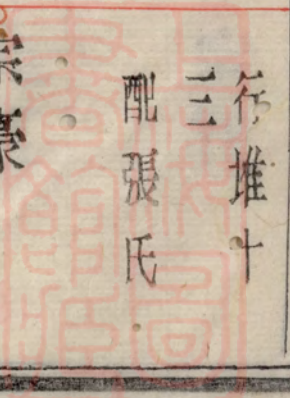 行堆十
三
配張氏
宗豪